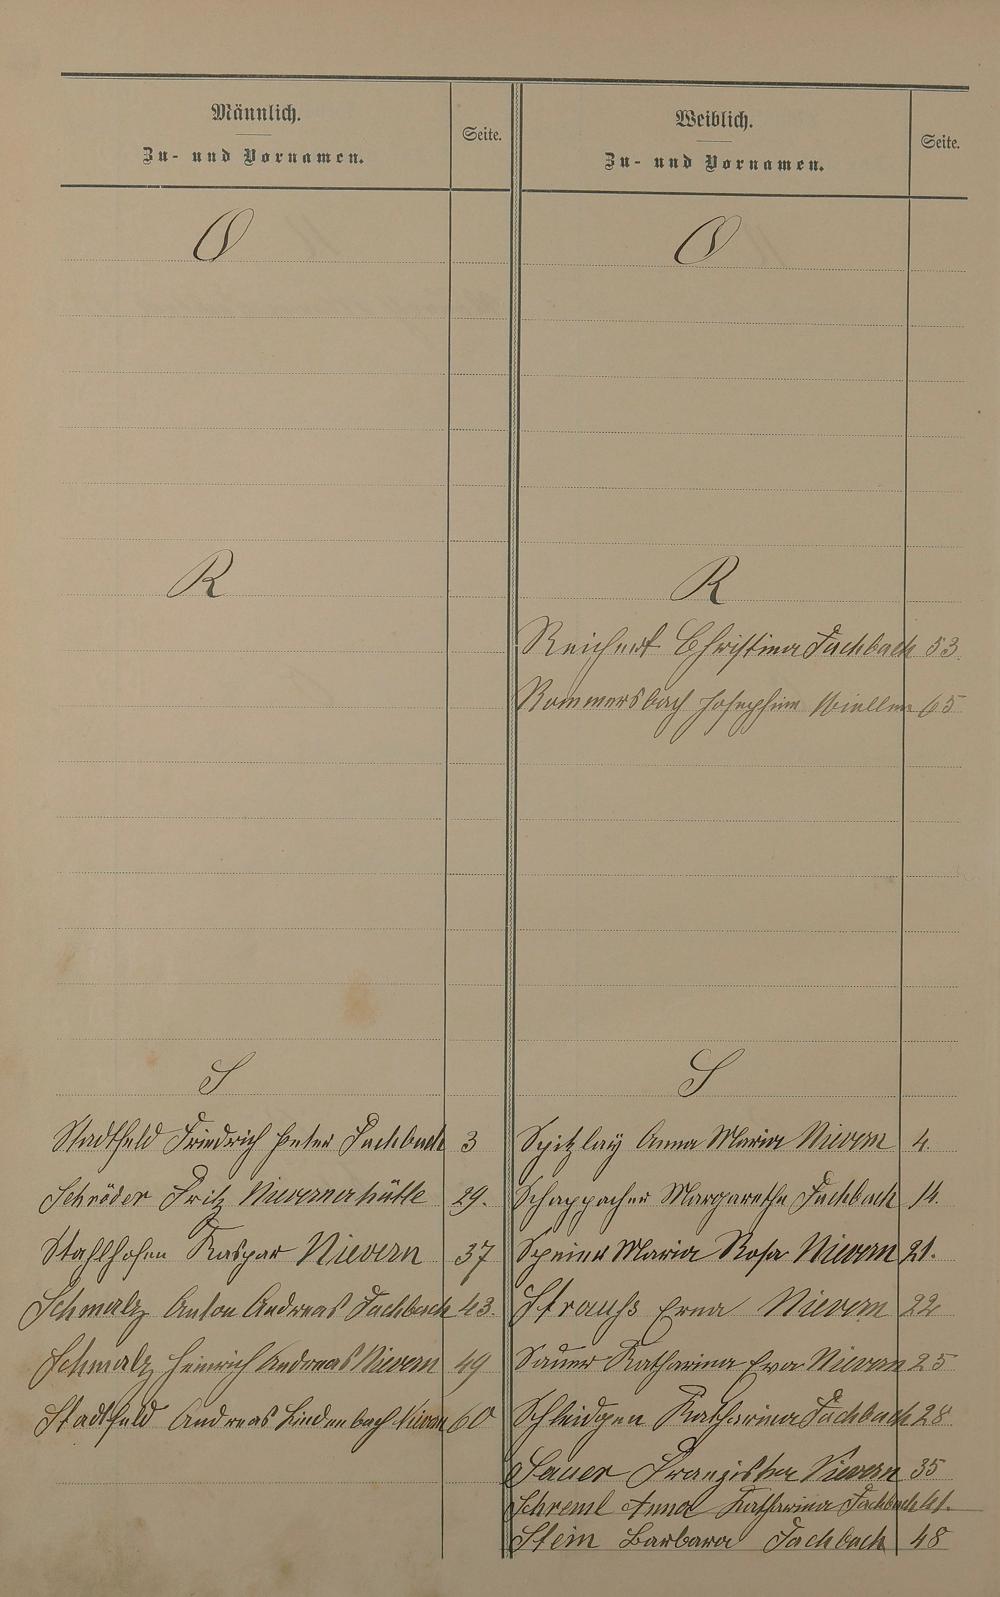 Männlich.
Zu- und Vornamen.
Seite.
O
R
S
Stadtfeld Friedrich Peter Fachbach 3
Schröder Fritz Nievernerhütte 29.
Stahlhofen Kaspar Nievern 37
Schmalz Anton Andreas Fachbach 43.
Schmalz Heinrich Andreas Nievern 49
Stadtfeld Andreas Lindenbach Nievern 60
Weiblich.
Zu- und Vornamen.
Seite.
O
R
Reichert Christina Fachbach 53.
Rommersbach Josephine 65
S
Spitzlay Anna Maria Nievern 4.
Schappacher Margarethe Fachbach 14.
Speier Maria Rosa Nievern 21.
Strauſs Erna Nievern 22
Sauer Katharina Eva Nievern 25
Schleidgen Katharina Fachbach 28
Sauer Franziska Nievern 35
Schreml Anna Katharina Fachbach 41.
Stein Barbara Fachbach 48